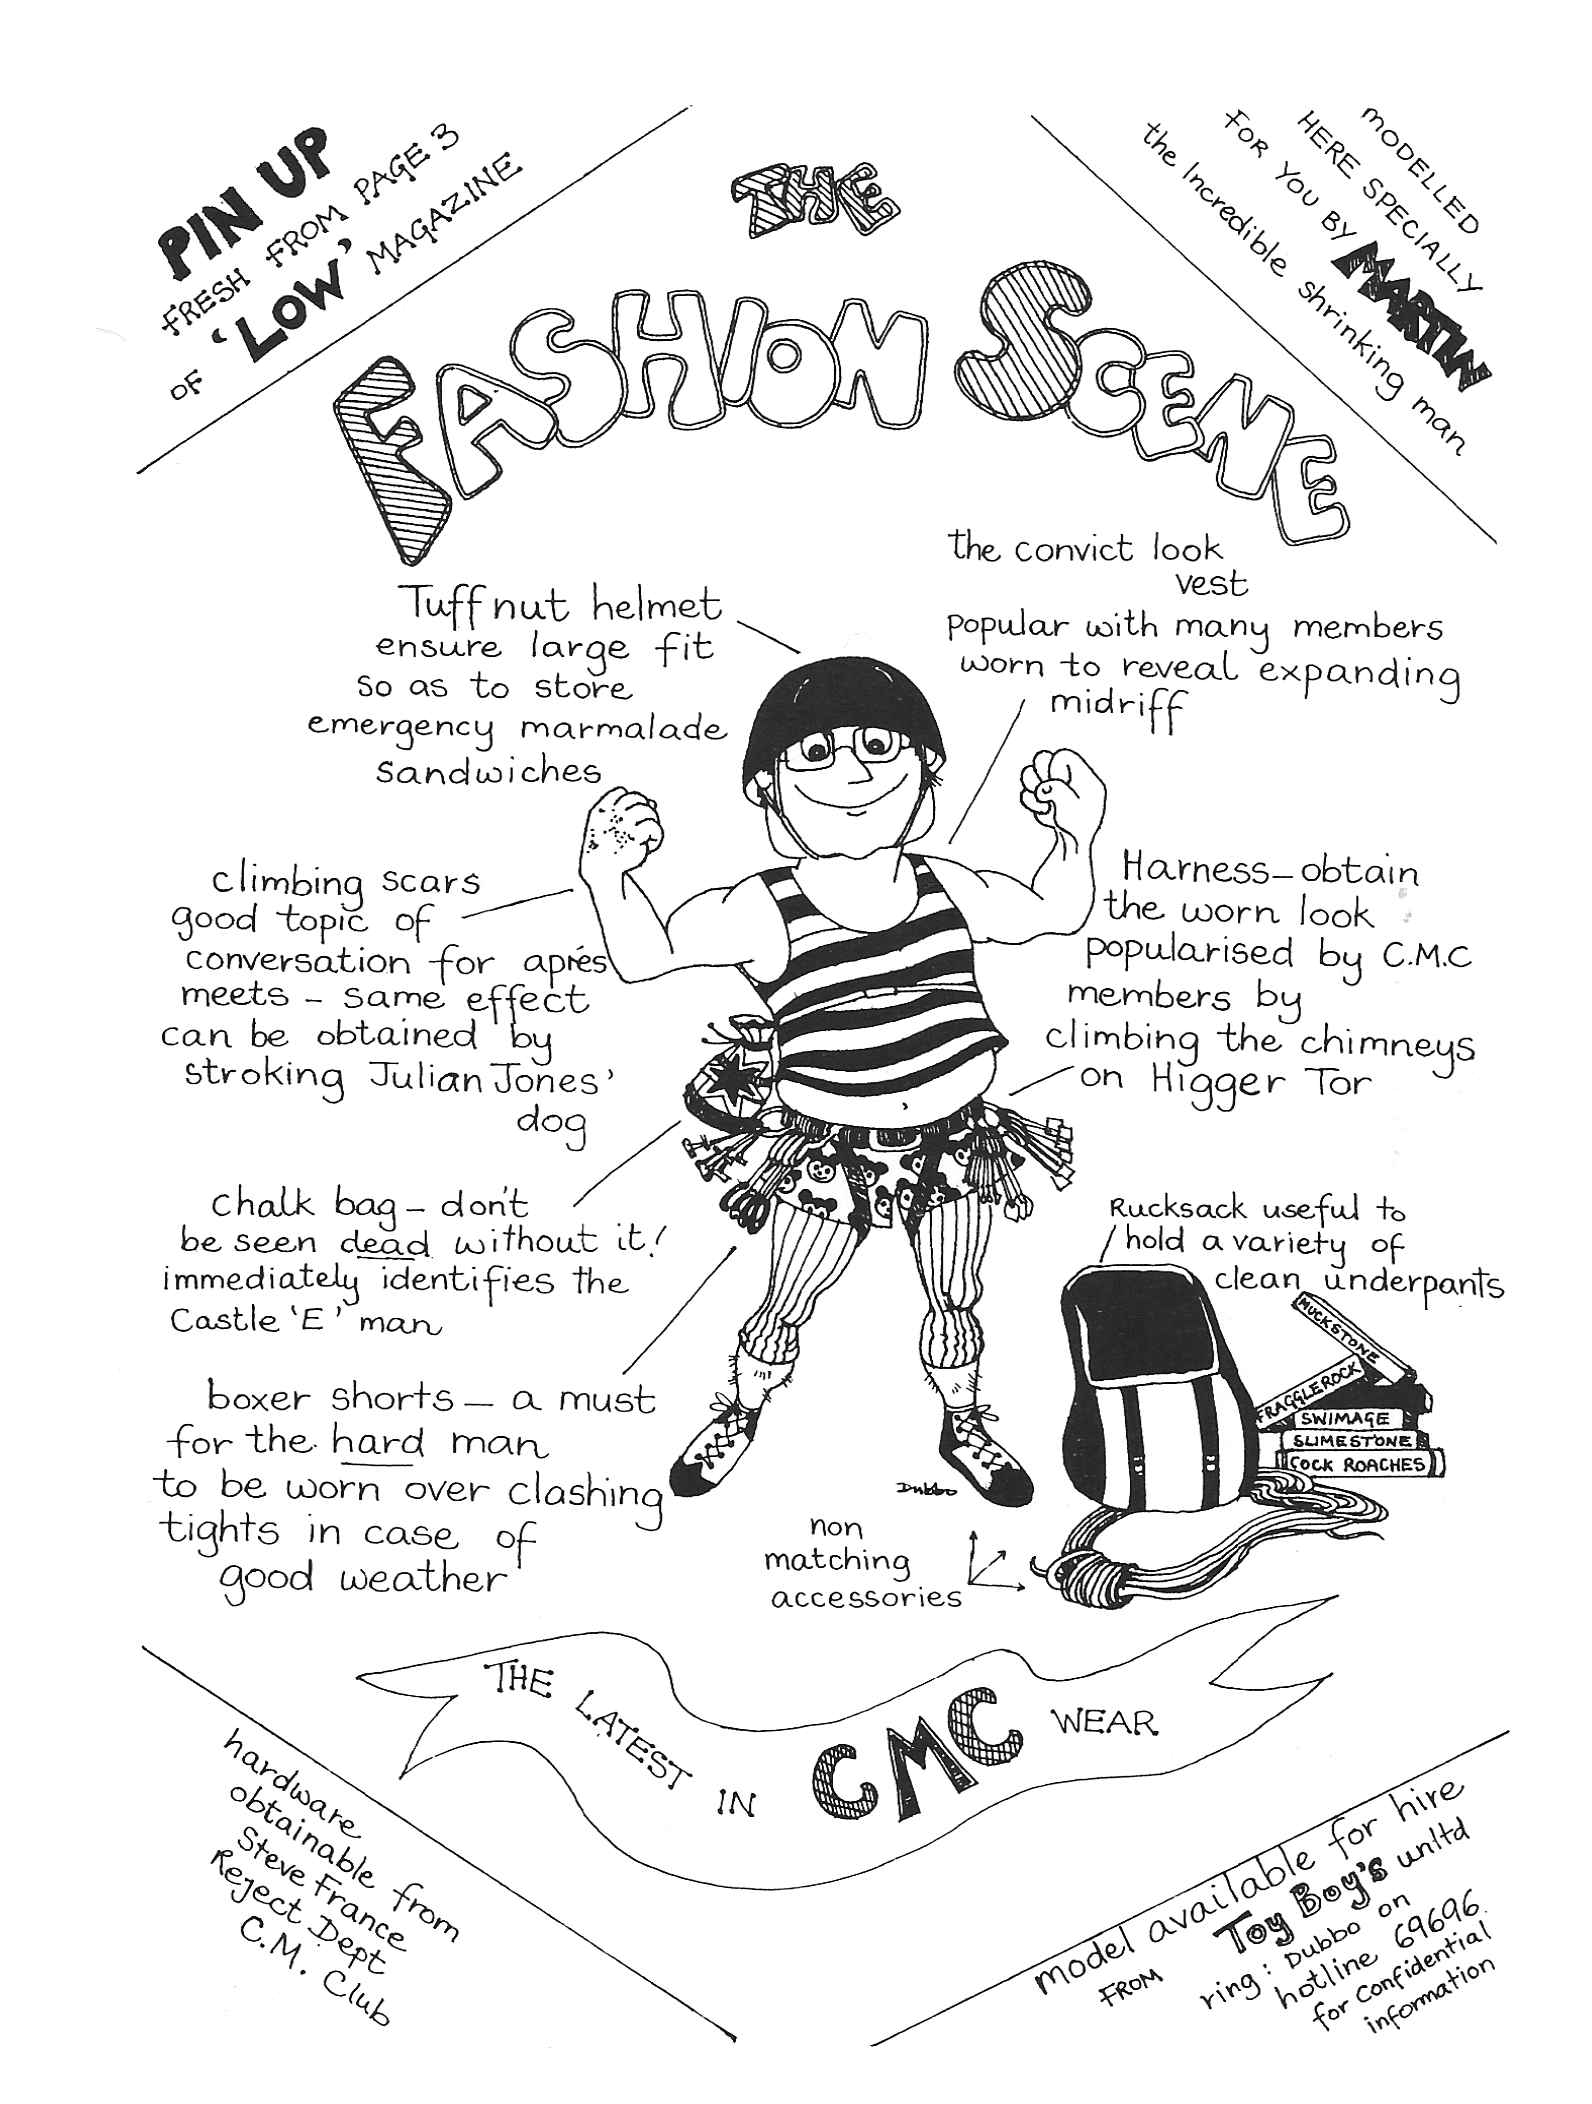 PIN UP
FRESH FROM PAGE 3
OF 'LOW' MAGAZINE
MODELLED
HERE SPECIALLY
FOR YOU BY MARTIN
the Incredible shrinking man
THE
FASHION SCENE
Tuffnut helmet
ensure large fit
so as to store
emergency marmalade
sandwiches
the convict look
vest
popular with many members
worn to reveal expanding
midriff
climbing scars
good topic of
conversation for aprés
meets - same effect
can be obtained by
stroking Julian Jones'
dog
Harness - obtain
the worn look
popularised by C.M.C
members by
climbing the chimneys
on Higger Tor
chalk bag - don't
be seen dead without it!
immediately identifies the
Castle 'E' man
Rucksack useful to
hold a variety of
clean underpants
MUCKSTONE
FRAGGLEROCK
SWIMAGE
SLIMESTONE
COCK ROACHES
boxer shorts - a must
for the hard man
to be worn over clashing
tights in case of
good weather
Dubbo
non
matching
accessories
THE LATEST IN CMC WEAR
hardware
obtainable from
Steve France
Reject Dept
C.M. Club
model available for hire
FROM Toy Boy's unltd
ring: Dubbo on
hotline 69696.
for confidential
information